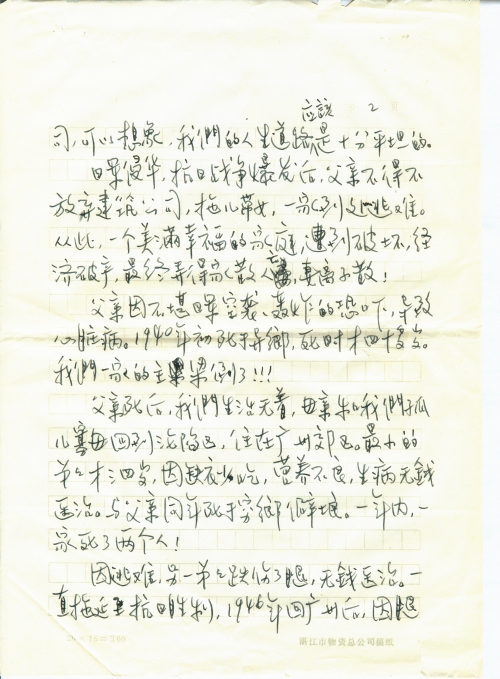 应該 2
司，可以想象，我們的人生道路是十分平坦的。
日军侵华，抗日战争爆发后，父亲不得不
放弃建筑公司，拖儿带女，一家到处逃难。
从此，一个美滿幸福的家庭，遭到破坏，经
济破产，最终弄得家散人亡，妻离子散！
父亲因不堪日军空袭、轰炸的恐吓，导致
心脏病。1940年初死于异鄉，死时才四十多岁。
我們一家的主梁倒了！！！
父亲死后，我們生活无着，母亲和我們孤
儿寡母回到沦陷区，住在广州郊区。最小的
弟弟才四岁，因缺衣少吃，营养不良，生病无錢
医治。与父亲同年死于穷鄉僻壤。一年内，一
家死了两个人！
因逃难，另一弟弟跌伤了腿，无錢医治。一
直拖延至抗日胜利，1946年回广州后，因腿
湛江市物资总公司稿纸